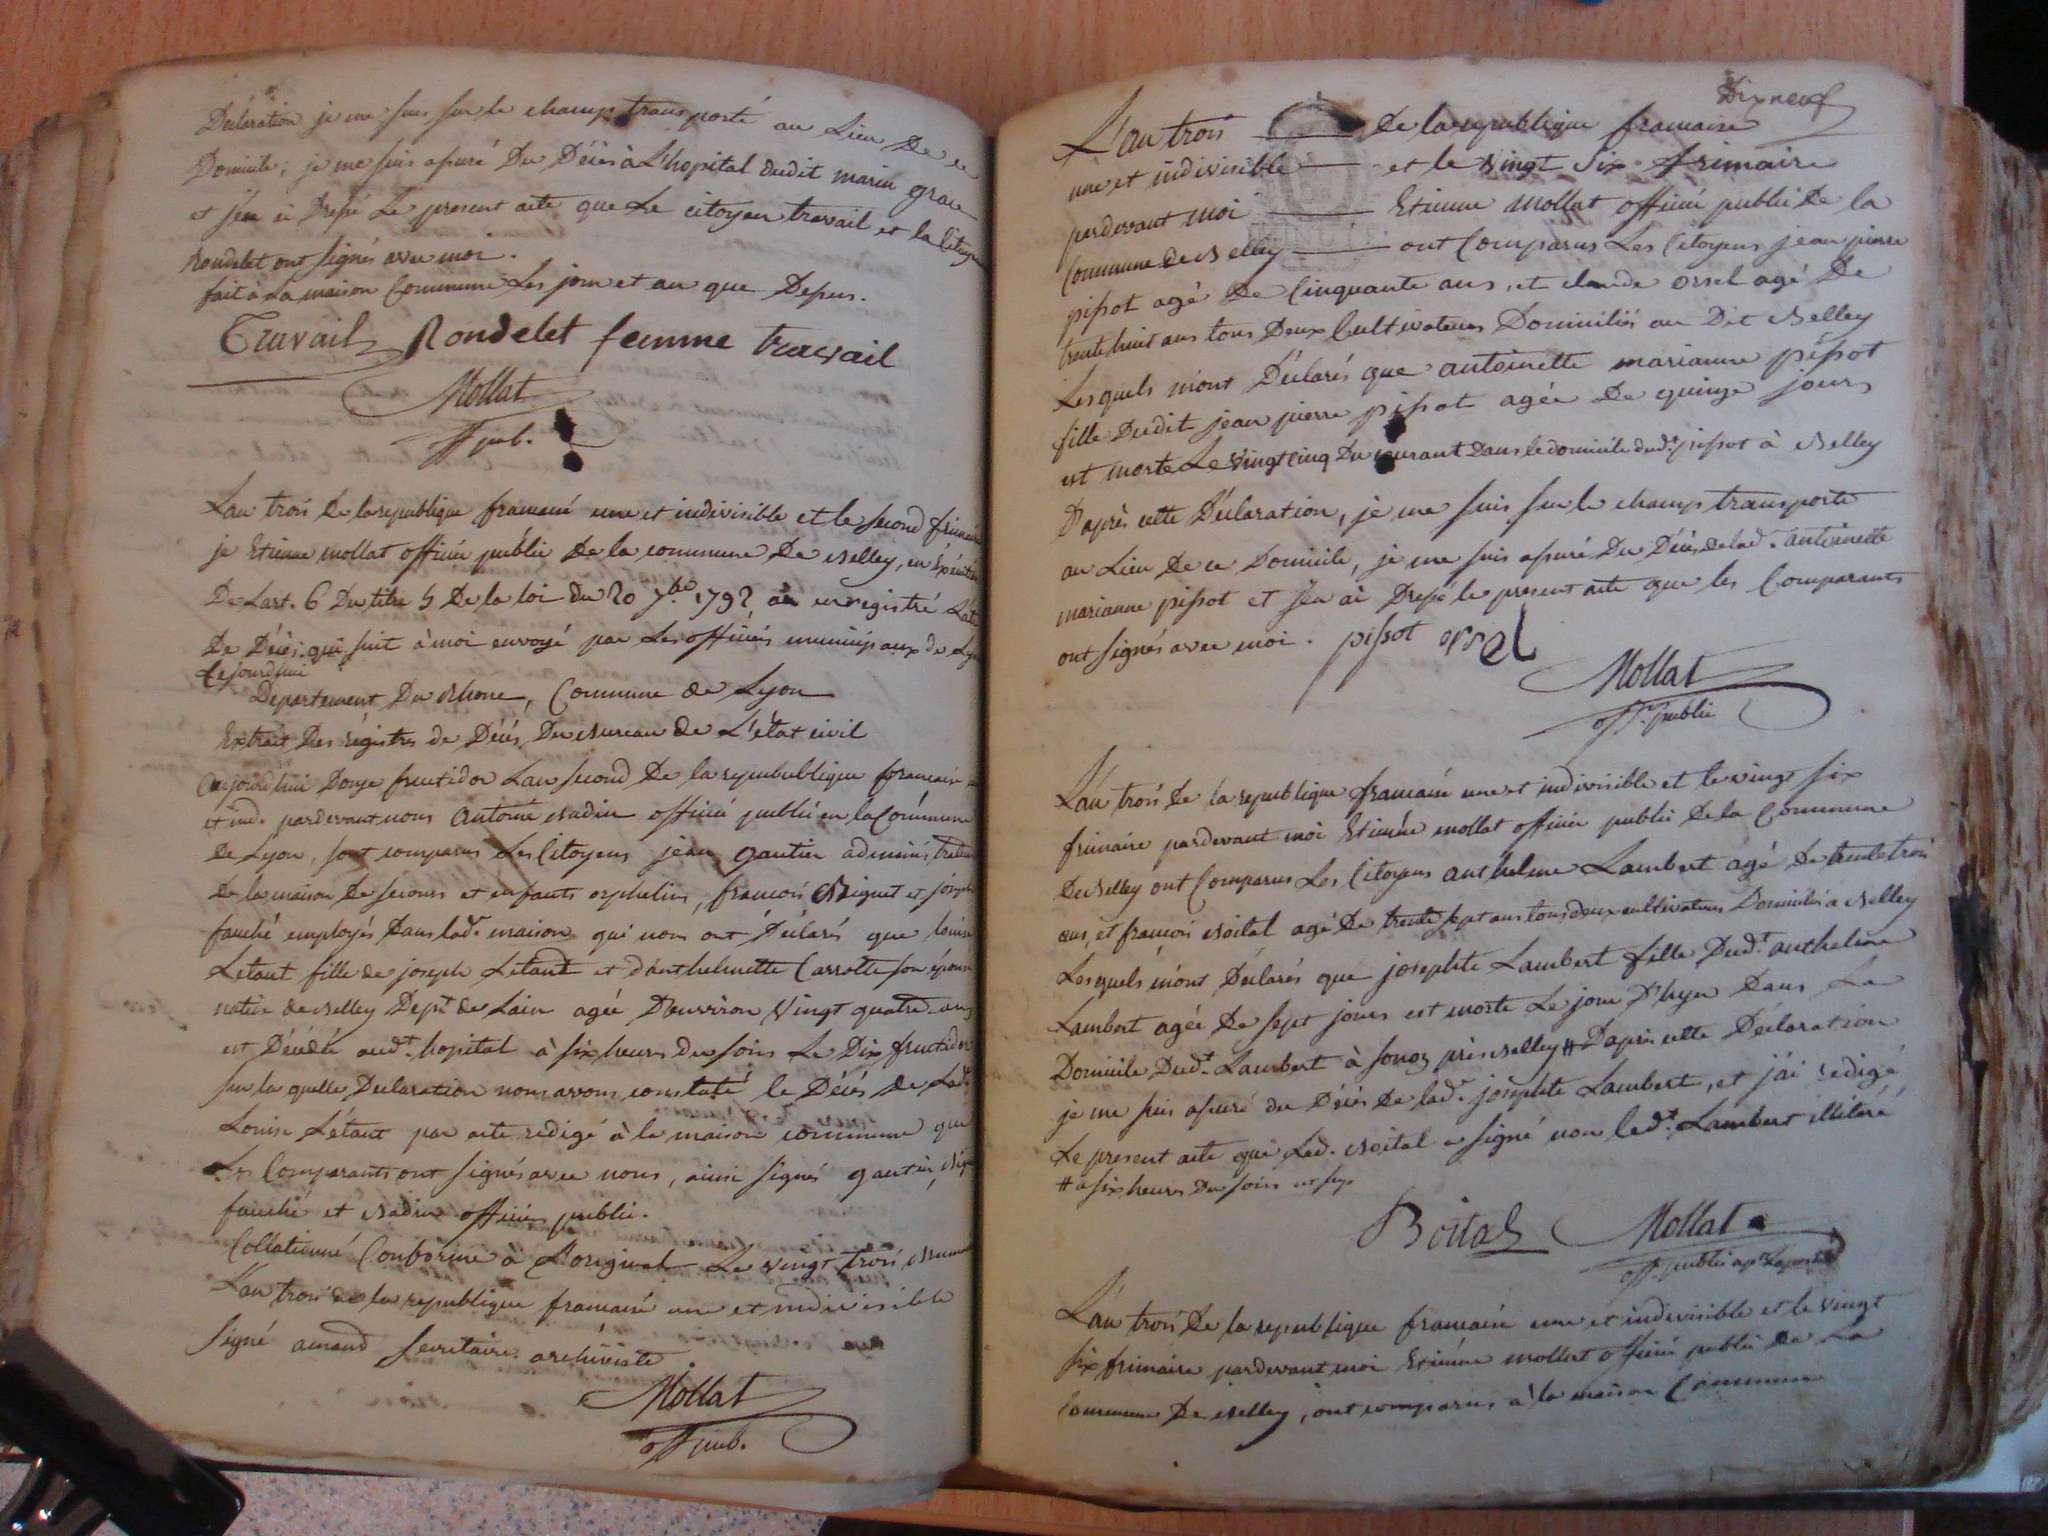 Déclaration je me suis sur le champ transporté au Lieu De ce
Domicile, je me suis assuré Du Décès à L'hopital dudit marin grau
et j'en ai Dressé Le present acte que Le citoyen travail et la Citoyen
Rondelet ont signés avec moi.
fait à La maison Commune Les jour et an que Depus.
Travail Rondelet femme travail
Mollat
off pub.
L'an trois De la republique francaise une et indivisible et le second frimaire
je Etienne mollat officier public De la commune De Belley, en
De L'art. 6 Du titre 5 De la loi du 20 7bre 1792, ai enregistré L'acte
De Décès qui suit à moi envoyé par Les officiers municipaux de Lyon
Cejourdhui
Departement Du Rhone, Commune de Lyon
Extrait Des régistres de Décés Du Bureau De L'état civil
Aujourd'hui Douze fructidor L'an second De la repubublique francaise
et ind. pardevant nous Antoine Badin officier public en la Commune
De Lyon, sont comparus Les Citoyens jean gautier administrateur
De la maison De secours et enfants orphelins, francois Biguet et joseph
fauché employés Dans lad. maison qui nous ont Déclarés que louise
Létant fille de joseph Létant et d'anthelmette Carrotte son épouse
native de Belley Dept. de Lain agée D'environ Vingt quatre ans
est Décédée aud.t hopital à six heures Du soir Le Dix fructidor
sur la quelle Declaration nous avons constaté le Décés De Lad.
Louise Létant par acte redigé à la maison commune que
Les Comparants ont signés avec nous, ainsi signés gautier,
fauché et Badin officier public.
Collationné Conforme à L'original Le vingt trois
L'an trois de la republique francaise une et indivisible
signé amand secretaire archiviste
Mollat
off pub.
Dix neuf
L'an trois De la republique francaise
une et indivisible et le vingt six frimaire
pardevant moi Etienne Mollat officier public De la
Commune de Belley ont Comparus Les Citoyens jean pierre
pissot agé De Cinquante ans, et claude orsel agé De
trente huit ans tous Deux Cultivateurs Domiciliés au Dit Belley
Lesquels m'ont Déclarés que antoinette marianne pissot
fille Dudit jean pierre pissot agée De quinze jours
est morte Le vingt cinq Du courant Dans le domicile dud.t pissot à Belley
D'après cette Déclaration, je me suis sur le champ transporté
au Lieu De ce Domicile, je me suis assuré Du Décès de lad. antoinette
marianne pissot et j'en ai Dressé le present acte que les Comparants
ont signés avec moi. pissot orsel
Mollat
off. public
L'an trois De la republique francaise une et indivisible et le vingt six
frimaire pardevant moi Etienne mollat officier public De la Commune
De Belley ont Comparus Les Citoyens anthelme Lambert agé De trente trois
ans, et francois Boital agé De trente sept ans tous deux cultivateurs Domiciliés a Belley
Lesquels m'ont Déclarés que josephte Lambert fille Dud.t anthelme
Lambert agée De sept jours est morte Le jour D'hyer Dans Le
Domicile Dud.t Lambert à sonoz près Belley # D'après cette Déclaration
je me suis assuré du Décès De lad.e josephte Lambert, et j'ai redigé
Le present acte que Led. Boital a signé non led.t Lambert illiteré
# a six heures Du soir
Boital Mollat
off. public
L'an trois De la republique francaise une et indivisible et le vingt
six frimaire pardevant moi Etienne mollat officier public De La
Commune De Belley, ont comparus, à la maison Commune